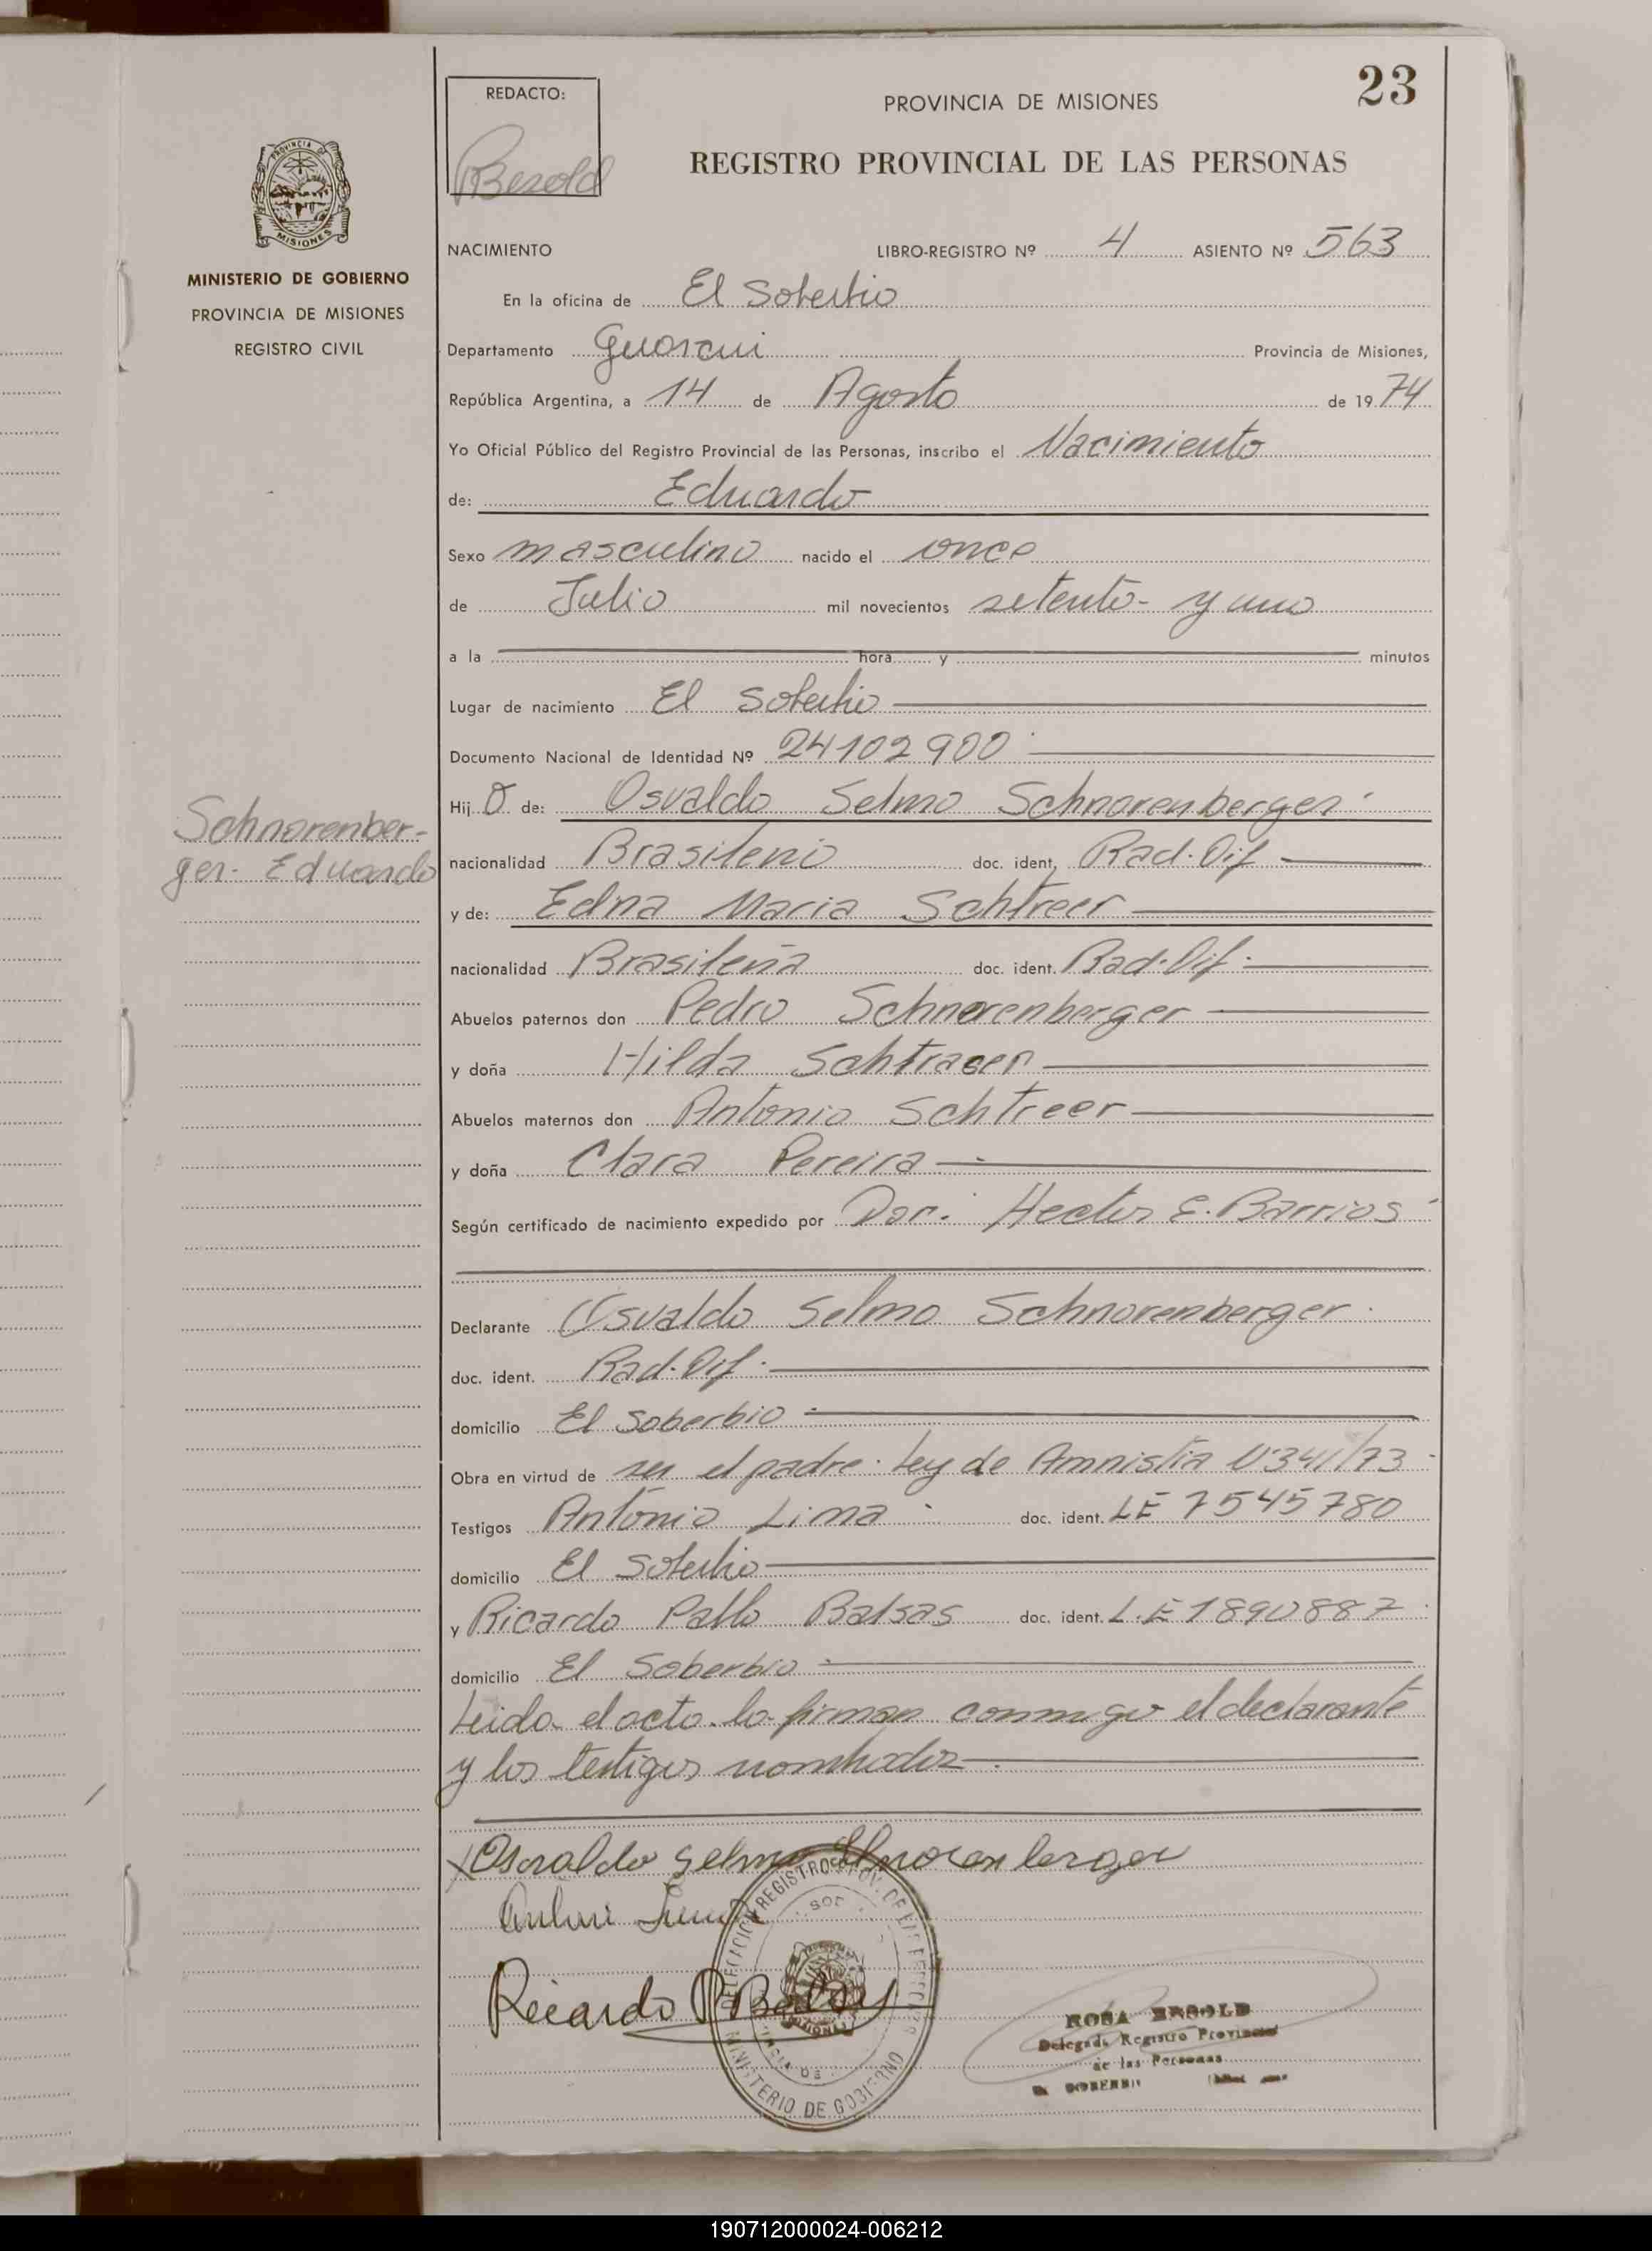 23
REDACTO:
Bezold
PROVINCIA DE MISIONES
REGISTRO PROVINCIAL DE LAS PERSONAS
PROVINCIA DE
MISIONES
MINISTERIO DE GOBIERNO
PROVINCIA DE MISIONES
REGISTRO CIVIL
NACIMIENTO LIBRO-REGISTRO Nº 4 ASIENTO Nº 563
En la oficina de El Soberbio
Departamento Guarani Provincia de Misiones,
República Argentina, a 14 de Agosto de 1974
Yo Oficial Público del Registro Provincial de las Personas, inscribo el Nacimiento
de: Eduardo
Sexo masculino nacido el once
de Julio mil novecientos setenta y uno
a la hora y minutos
Lugar de nacimiento El Soberbio
Documento Nacional de Identidad Nº 24102900
Hijo de: Osvaldo Selmo Schnorenberger
Schnorenber-
ger Eduardo
nacionalidad Brasileño doc. ident, Rad. Dif
y de: Edna Maria Schtreer
nacionalidad Brasileña doc. ident. Rad. Dif.
Abuelos paternos don Pedro Schnorenberger
y doña Hilda
Abuelos maternos don Antonio Schtreer
y doña Clara Pereira
Según certificado de nacimiento expedido por Doc. Hector E. Barrios
Declarante Osvaldo Selmo Schnorenberger
doc. ident. Rad. Dif.
domicilio El Soberbio
Obra en virtud de ser el padre. Ley de Amnistia Nº341/73
Testigos Antonio Lima doc. ident. LE 7545780
domicilio El Soberbio
y Ricardo Pablo Balsas doc. ident. L.E 1890887
domicilio El Soberbio
Leida el acta la firman conmigo el declarante
y los testigos nombrados
Osvaldo Selmo Schnorenberger
Ricardo P Balsas
MINISTERIO DE GOBIERNO
ROSA BEZOLD
Delegada Registro Provincial
de las Personas
EL SOBERBIO
190712000024-006212